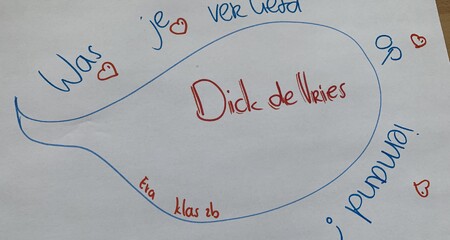 Was je verliefd op iemand?
Dick de Vries
Eva
klas 2b